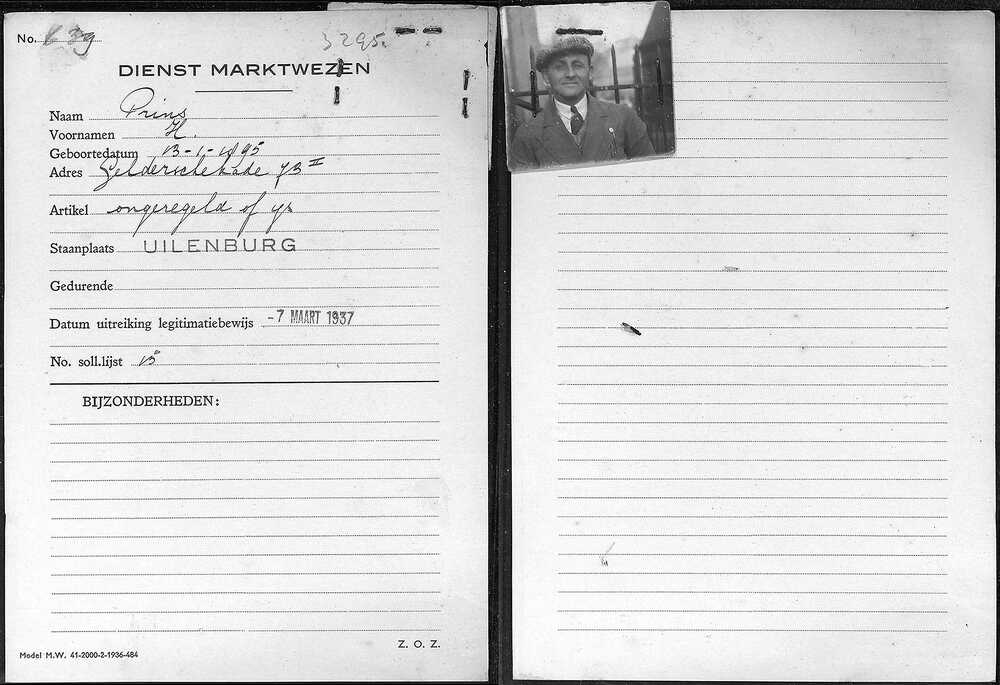 No. 639
3295.
DIENST MARKTWEZEN
Naam Prins
Voornamen H.
Geboortedatum 13-1-1895
Adres Gelderschekade 73 II
Artikel ongeregeld of
Staanplaats UILENBURG
Gedurende
Datum uitreiking legitimatiebewijs -7 MAART 1937
No. soll.lijst 15
BIJZONDERHEDEN:
Z. O. Z.
Model M.W. 41-2000-2-1936-484